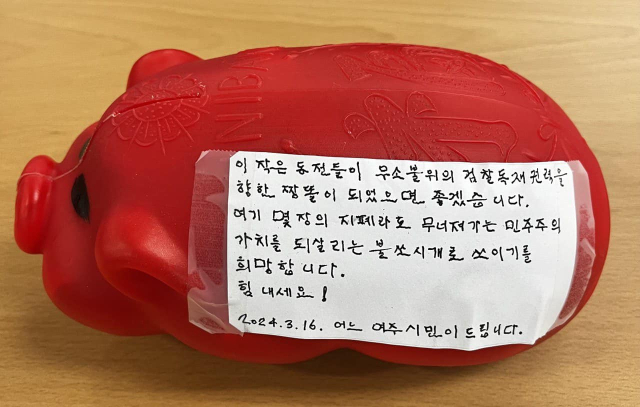 이 작은 동전들이 무소불위의 검찰독재 권력을
향한 짱돌이 되었으면 좋겠습니다.
여기 몇장의 지폐라도 무너져가는 민주주의
가치를 되살리는 불쏘시개로 쓰이기를
희망합니다.
힘 내세요!
2024.3.16. 어느 여주시민이 드립니다.